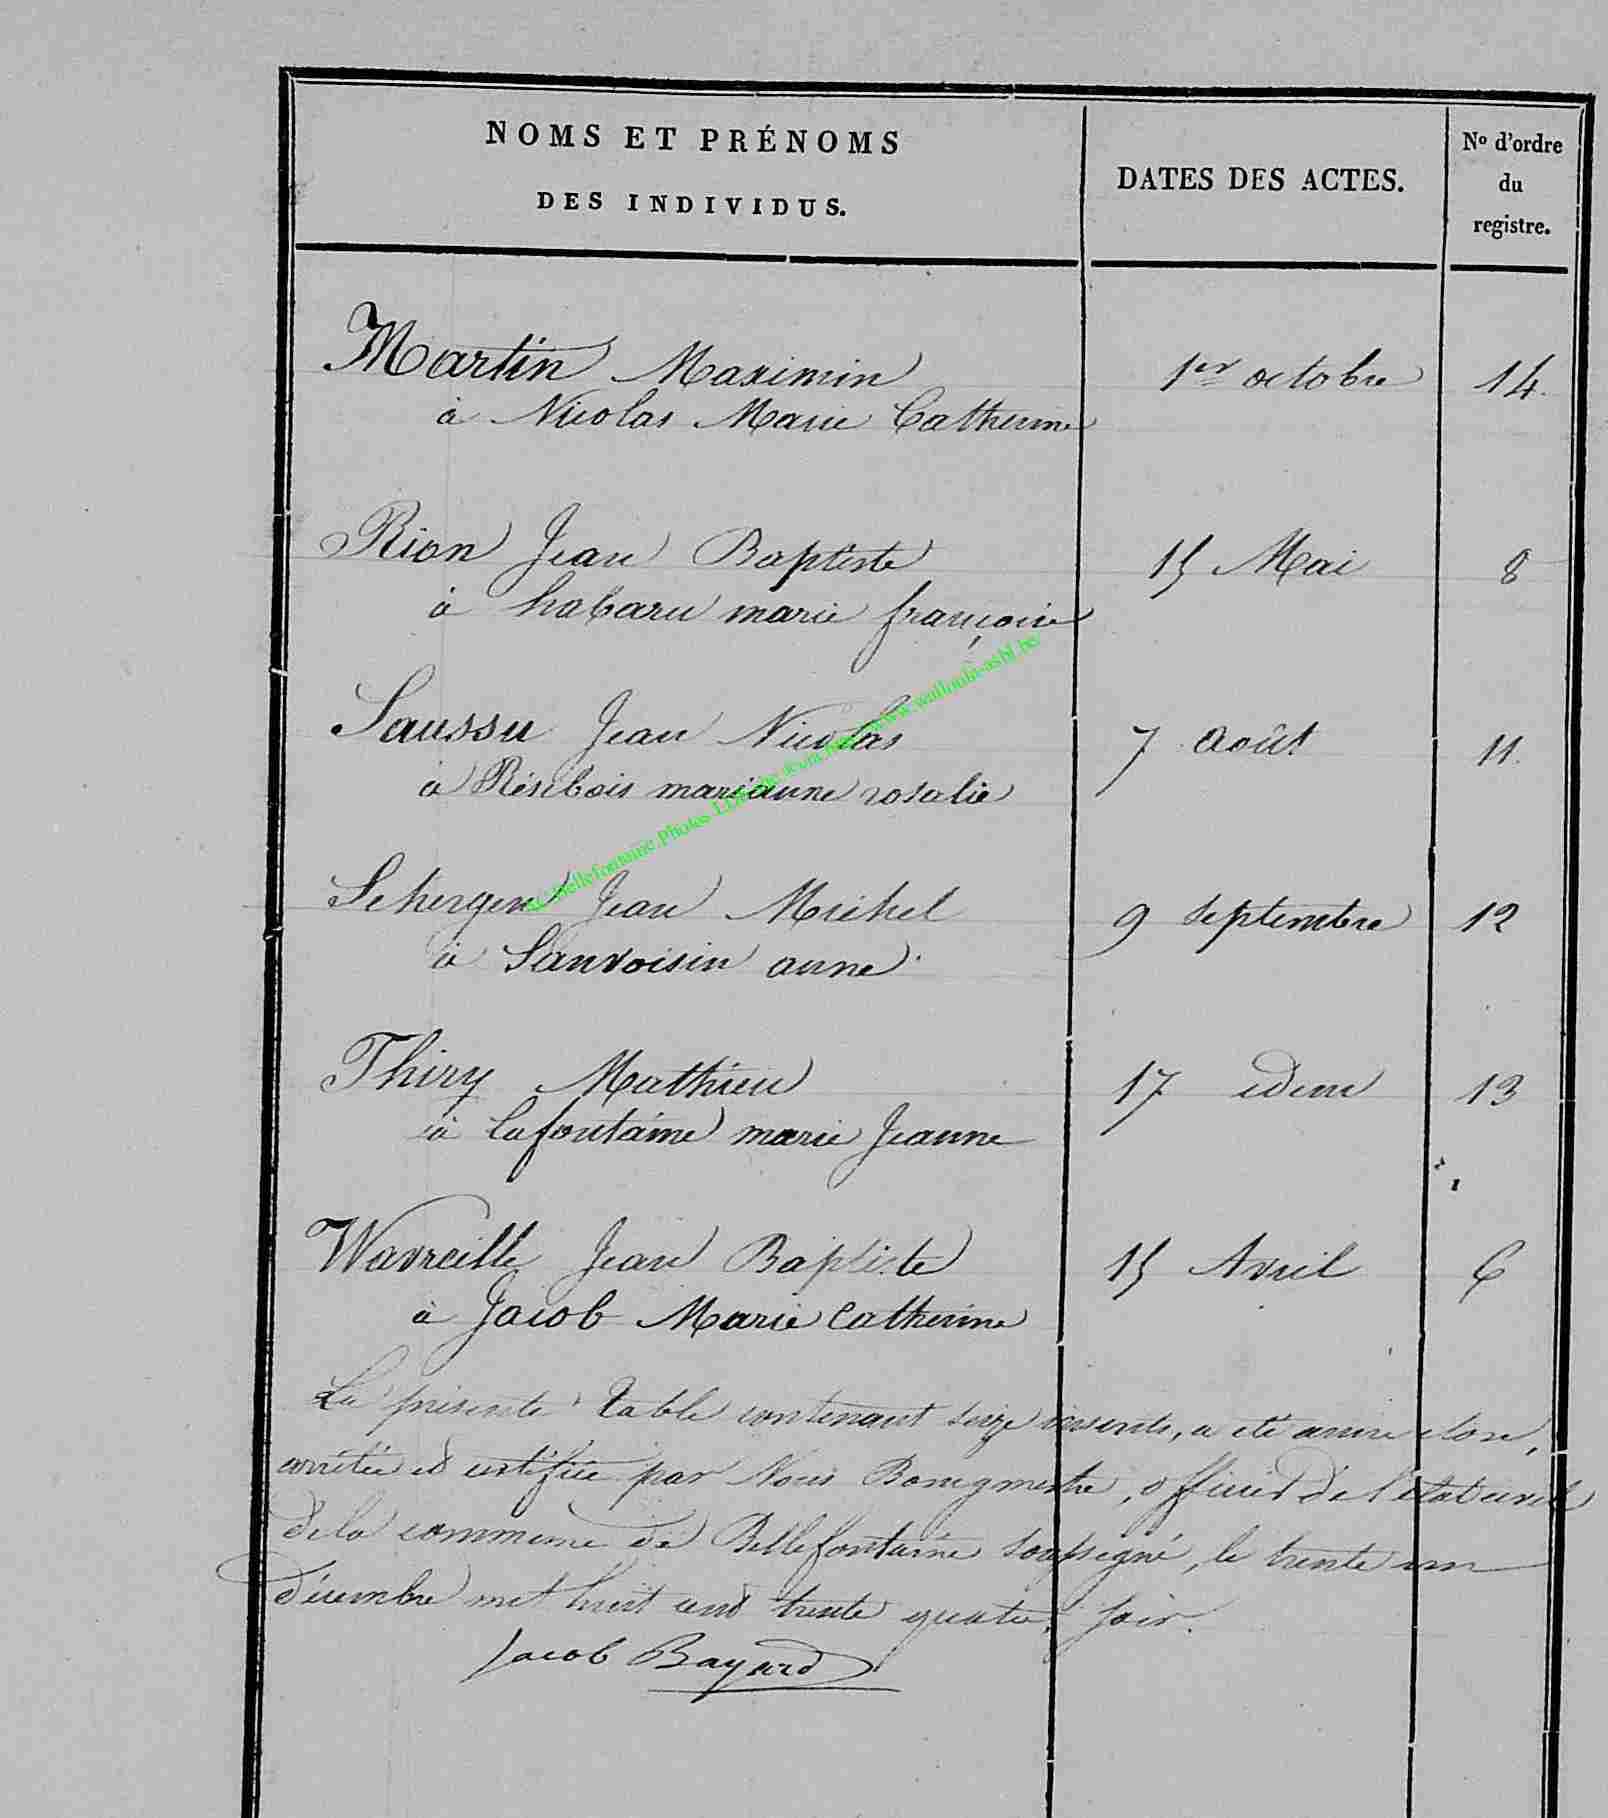 NOMS ET PRÉNOMS
DES INDIVIDUS.
DATES DES ACTES.
No d'ordre
du
registre.
Martin Maximin 1er octobre 14.
à Nicolas Marie Catherine
Rion Jean Baptiste 15 Mai 8
à habaru marie françoise
Saussu Jean Nicolas 7 août 11.
à Résibois marianne rosalie
Schergen Jean Michel 9 septembre 12
à Sauvoisin anne
Thiry Mathieu 17 idem 13
à Lafontaine marie Jeanne
Wavreille Jean Baptiste 15 Avril 6
à Jacob Marie Catherine
La présente table contenant seize inserits, a été close,
arrêtée et certifiée par Nous Bourgmestre, officier de l'état civil
de la commune de Bellefontaine soussigné, le trente un
décembre mil huit cent trente quatre, soir.
Jacob Bayard
Bellefontaine Photos www.wallonia-asbl.be